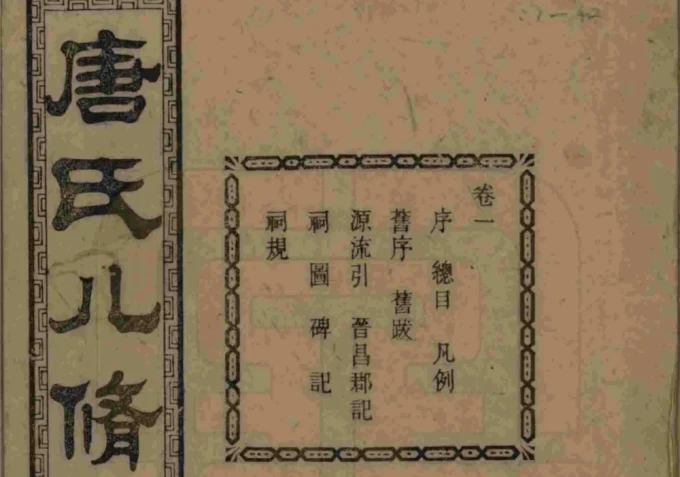 唐氏八脩
卷一
序 總目 凡例
舊序 舊跋
源流引 晉昌郡記
祠圖碑記
祠規